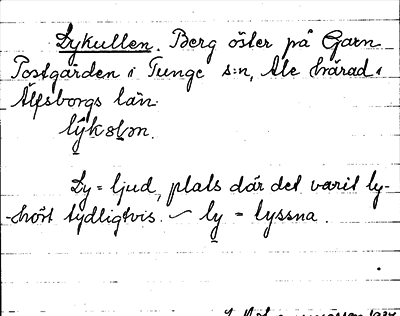 Lykullen. Berg öster på Garn
Postgården i Tunge s:n, Ale härad i
Älfsborgs län.
lýkɘlɘn.
Ly = ljud, plats där det varit ly-
-hört tydligtvis. ~ ly = lyssna.